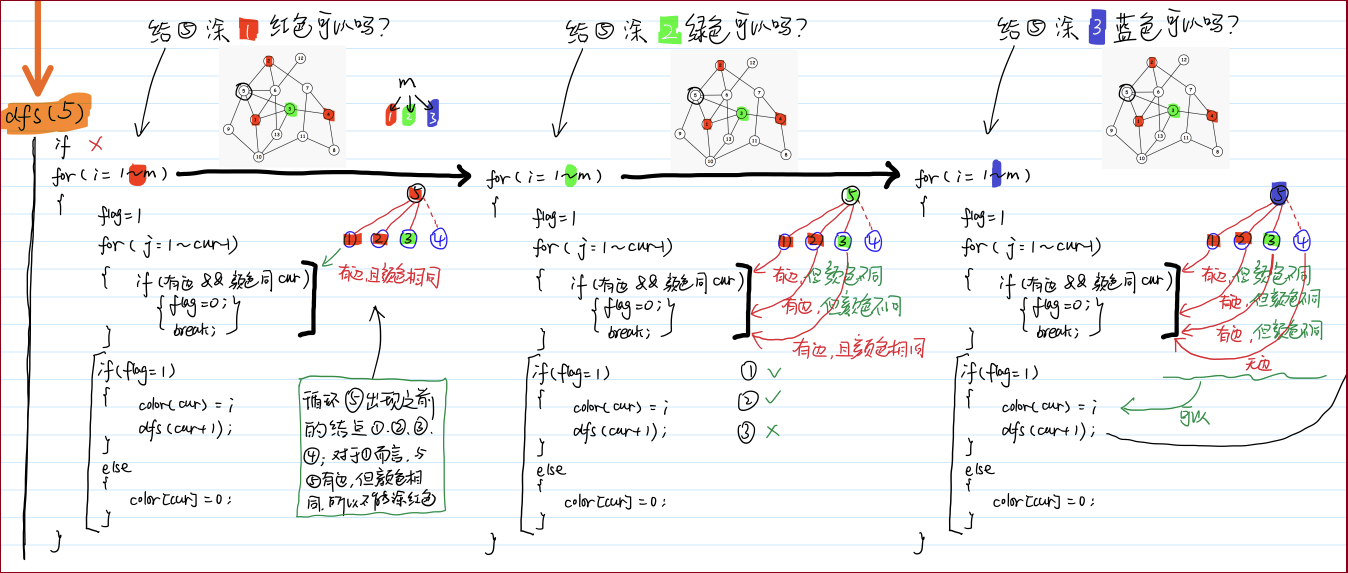 给⑤涂1红色可以吗?
给⑤涂2绿色可以吗?
给⑤涂3蓝色可以吗?
dfs(5)
m
1 2 3
if ×
for(i=1~m)
{
flag=1
for(j=1~cur-1)
{ if(有边 && 颜色同cur)
{flag=0;
break; }
}
if(flag=1)
{
color(cur)=i
dfs(cur+1);
}
else
{
color[cur]=0;
}
}
5
① ② ③ ④
有边,且颜色相同
循环⑤出现之前
的结点①.②.③.
④;对于①而言,与
⑤有边,但颜色相
同,所以不能涂红色
for(i=1~m)
{
flag=1
for(j=1~cur-1)
{ if(有边 && 颜色同cur)
{flag=0;
break; }
}
if(flag=1)
{
color(cur)=i
dfs(cur+1);
}
else
{
color[cur]=0;
}
}
5
① ② ③ ④
有边,但颜色不同
有边,但颜色不同
有边,且颜色相同
① ✓
② ✓
③ ×
for(i=1~m)
{
flag=1
for(j=1~cur-1)
{ if(有边 && 颜色同cur)
{flag=0;
break; }
}
if(flag=1)
{
color(cur)=i
dfs(cur+1);
}
else
{
color[cur]=0;
}
}
5
① ② ③ ④
有边,但颜色不同
有边,但颜色不同
有边,但颜色不同
无边
可以